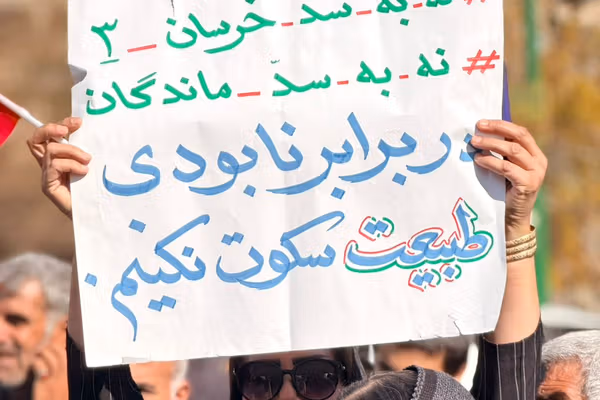 # نه_به_سد_خرسان_۳
# نه_به_سدّ_ماندگان
در برابر نابودی
طبیعت سکوت نکنیم.